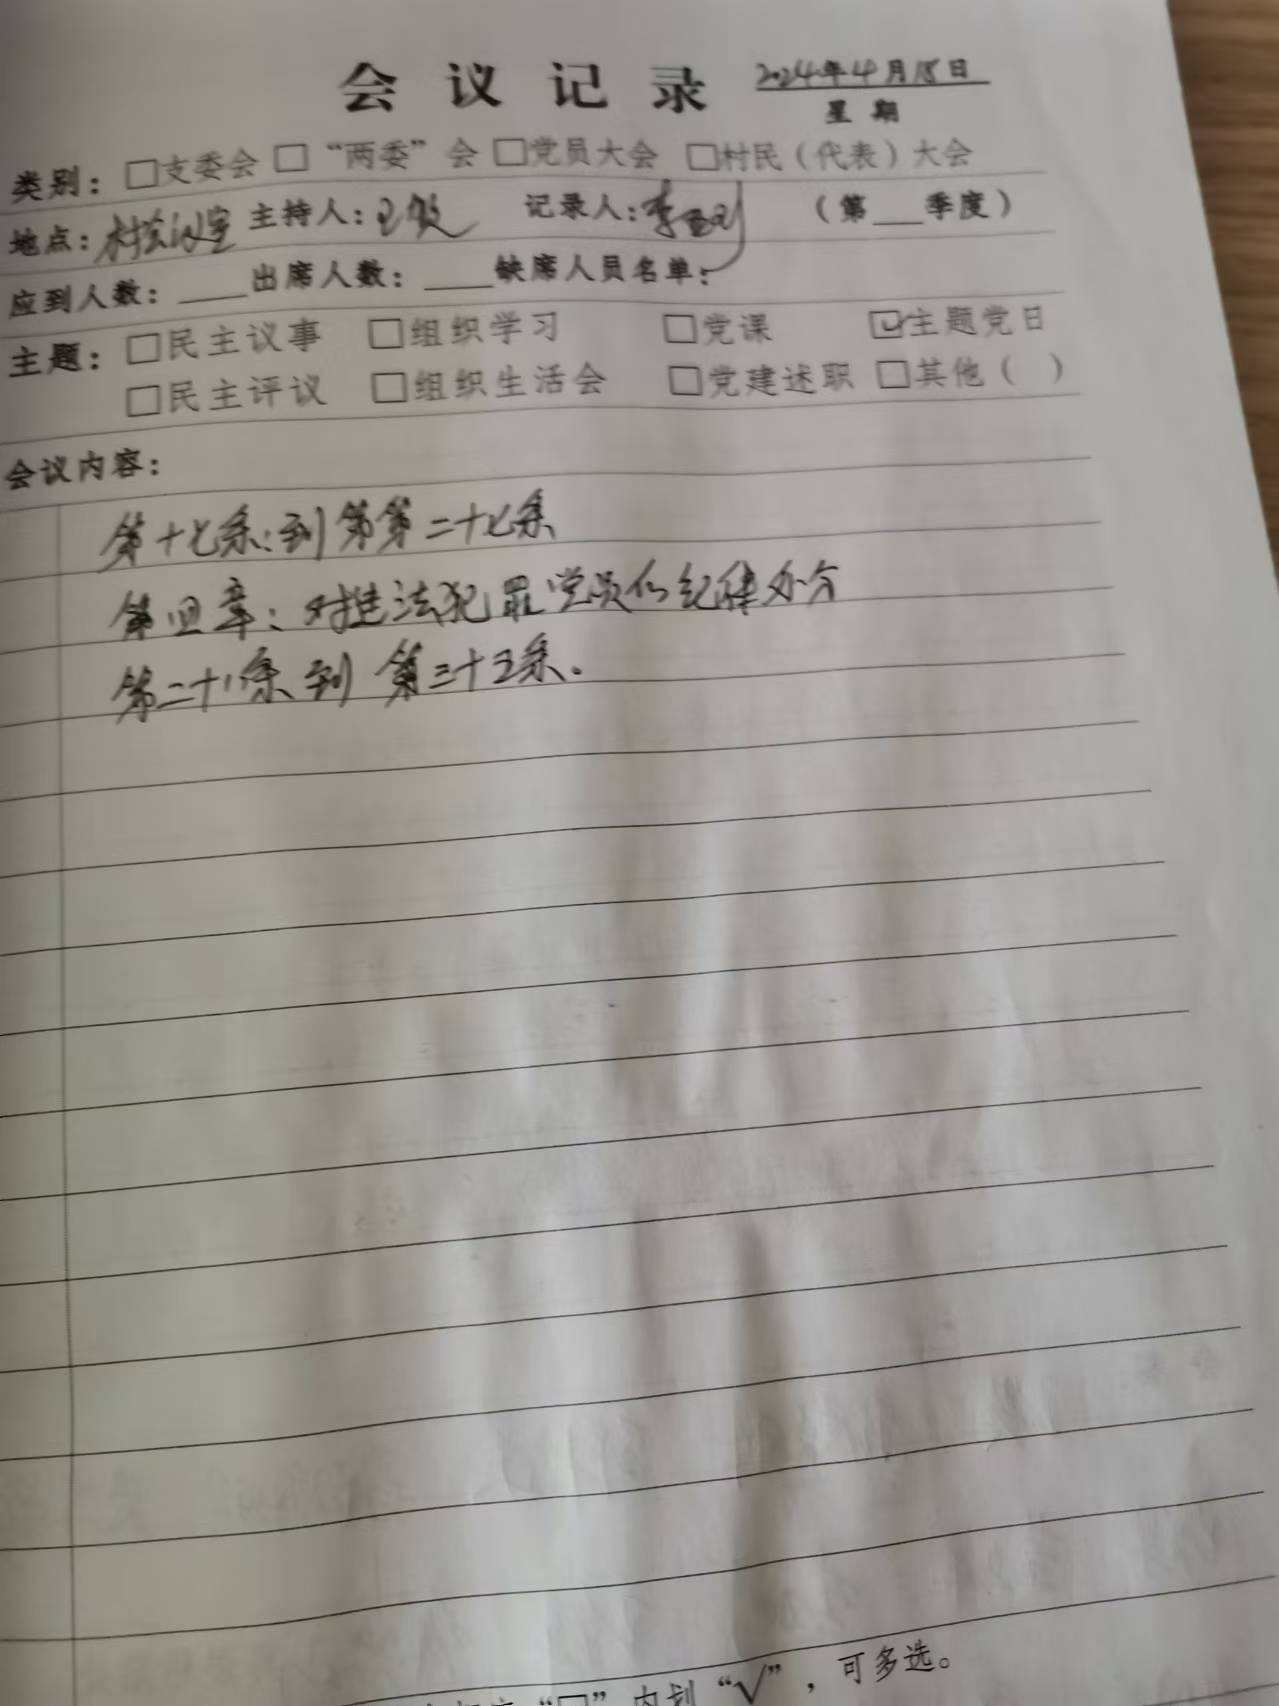 会议记录 2024年4月18日
星期
类别：□支委会 □“两委”会 □党员大会 □村民（代表）大会
地点：村会议室 主持人：王 记录人：李 （第___季度）
应到人数：____出席人数：____缺席人员名单：
主题：□民主议事 □组织学习 □党课 ☑主题党日
□民主评议 □组织生活会 □党建述职 □其他（ ）
会议内容：
第十七条：到第第二十七条
第四章：对违法犯罪党员的纪律处分
第二十八条到第三十五条。
“□”内划“√”，可多选。